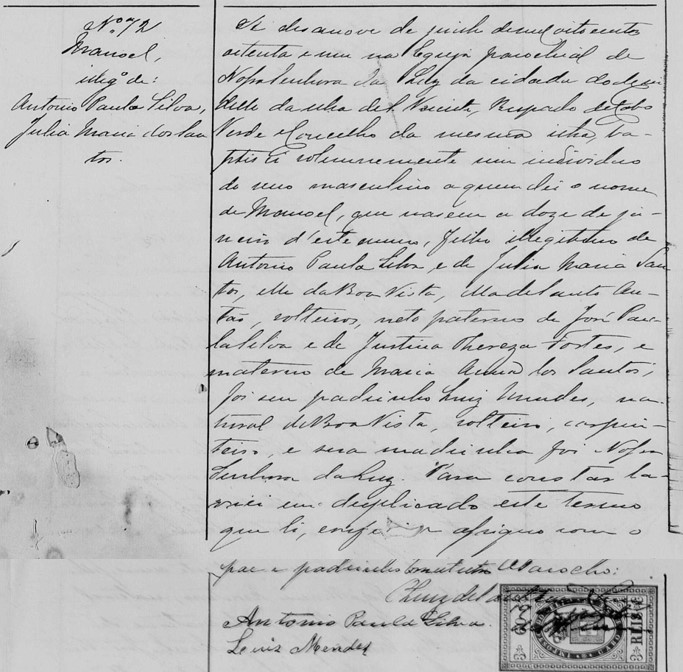 Nº 72
Manoel,
illegº de:
Antonio Paula Silva,
Julia Maria dos San
tos.
A desanove de junho de mil oitocentos
oitenta e um na Egreja parochial de
Nossa Senhora da Luz da cidade do Min
dello da ilha de S. Vicente, Bispado de Cabo
Verde e Concelho da mesma ilha, ba-
ptisei solemnemente um individuo
do sexo masculino a quem dei o nome
de Manoel, que nasceu a doze de ja-
neiro d'este anno, filho illegitimo de
Antonio Paula Silva e de Julia Maria San
tos, elle da Boa Vista, ella de Santo An-
tão, solteiros, neto paterno de José Pau-
la Silva e de Justina Thereza Fortes, e
materno de Maria Anna dos Santos,
foi seu padrinho Luiz Mendes, na-
tural de Boa Vista, solteiro, carpin-
teiro, e sua madrinha foi Nossa
Senhora da Luz. Para constar la-
vrei em duplicado este termo
que li, conferi e assigno com o
pae e padrinho O Parocho:
Antonio Paula Silva.
Luis Mendes
REIS